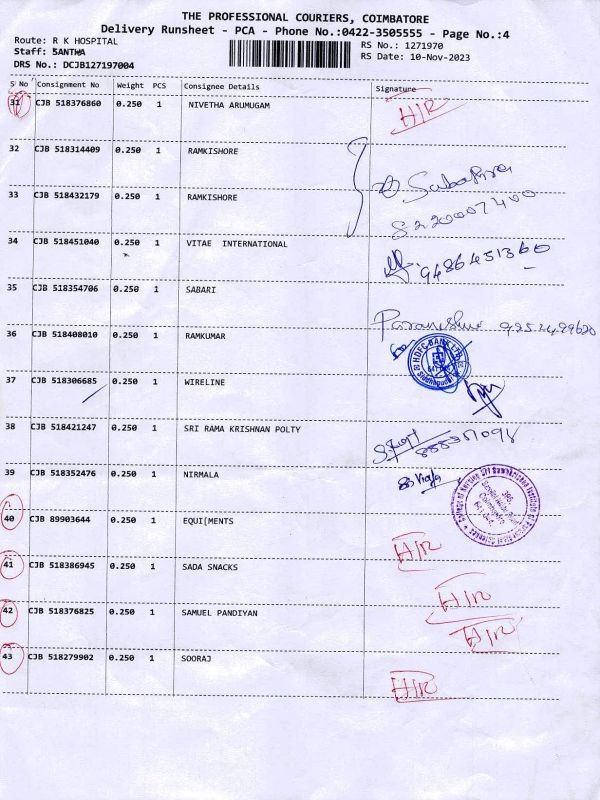 THE PROFESSIONAL COURIERS, COIMBATORE
Delivery Runsheet - PCA - Phone No.:0422-3505555 - Page No.:4
Route: R K HOSPITAL
RS No.: 1271970
Staff: SANTHA
RS Date: 10-Nov-2023
DRS No.: DCJB127197004
S No Consignment No Weight PCS Consignee Details Signature
31 CJB 518376860 0.250 1 NIVETHA ARUMUGAM H/R
32 CJB 518314409 0.250 1 RAMKISHORE
33 CJB 518432179 0.250 1 RAMKISHORE
8220007400
34 CJB 518451040 0.250 1 VITAE INTERNATIONAL
9486451360
35 CJB 518354706 0.250 1 SABARI
36 CJB 518408010 0.250 1 RAMKUMAR
HDFC BANK LTD
37 CJB 518306685 0.250 1 WIRELINE
38 CJB 518421247 0.250 1 SRI RAMA KRISHNAN POLTY
39 CJB 518352476 0.250 1 NIRMALA
40 CJB 89903644 0.250 1 EQUI[MENTS H/R
41 CJB 518386945 0.250 1 SADA SNACKS H/R
42 CJB 518376825 0.250 1 SAMUEL PANDIYAN H/R
43 CJB 518279902 0.250 1 SOORAJ H/R